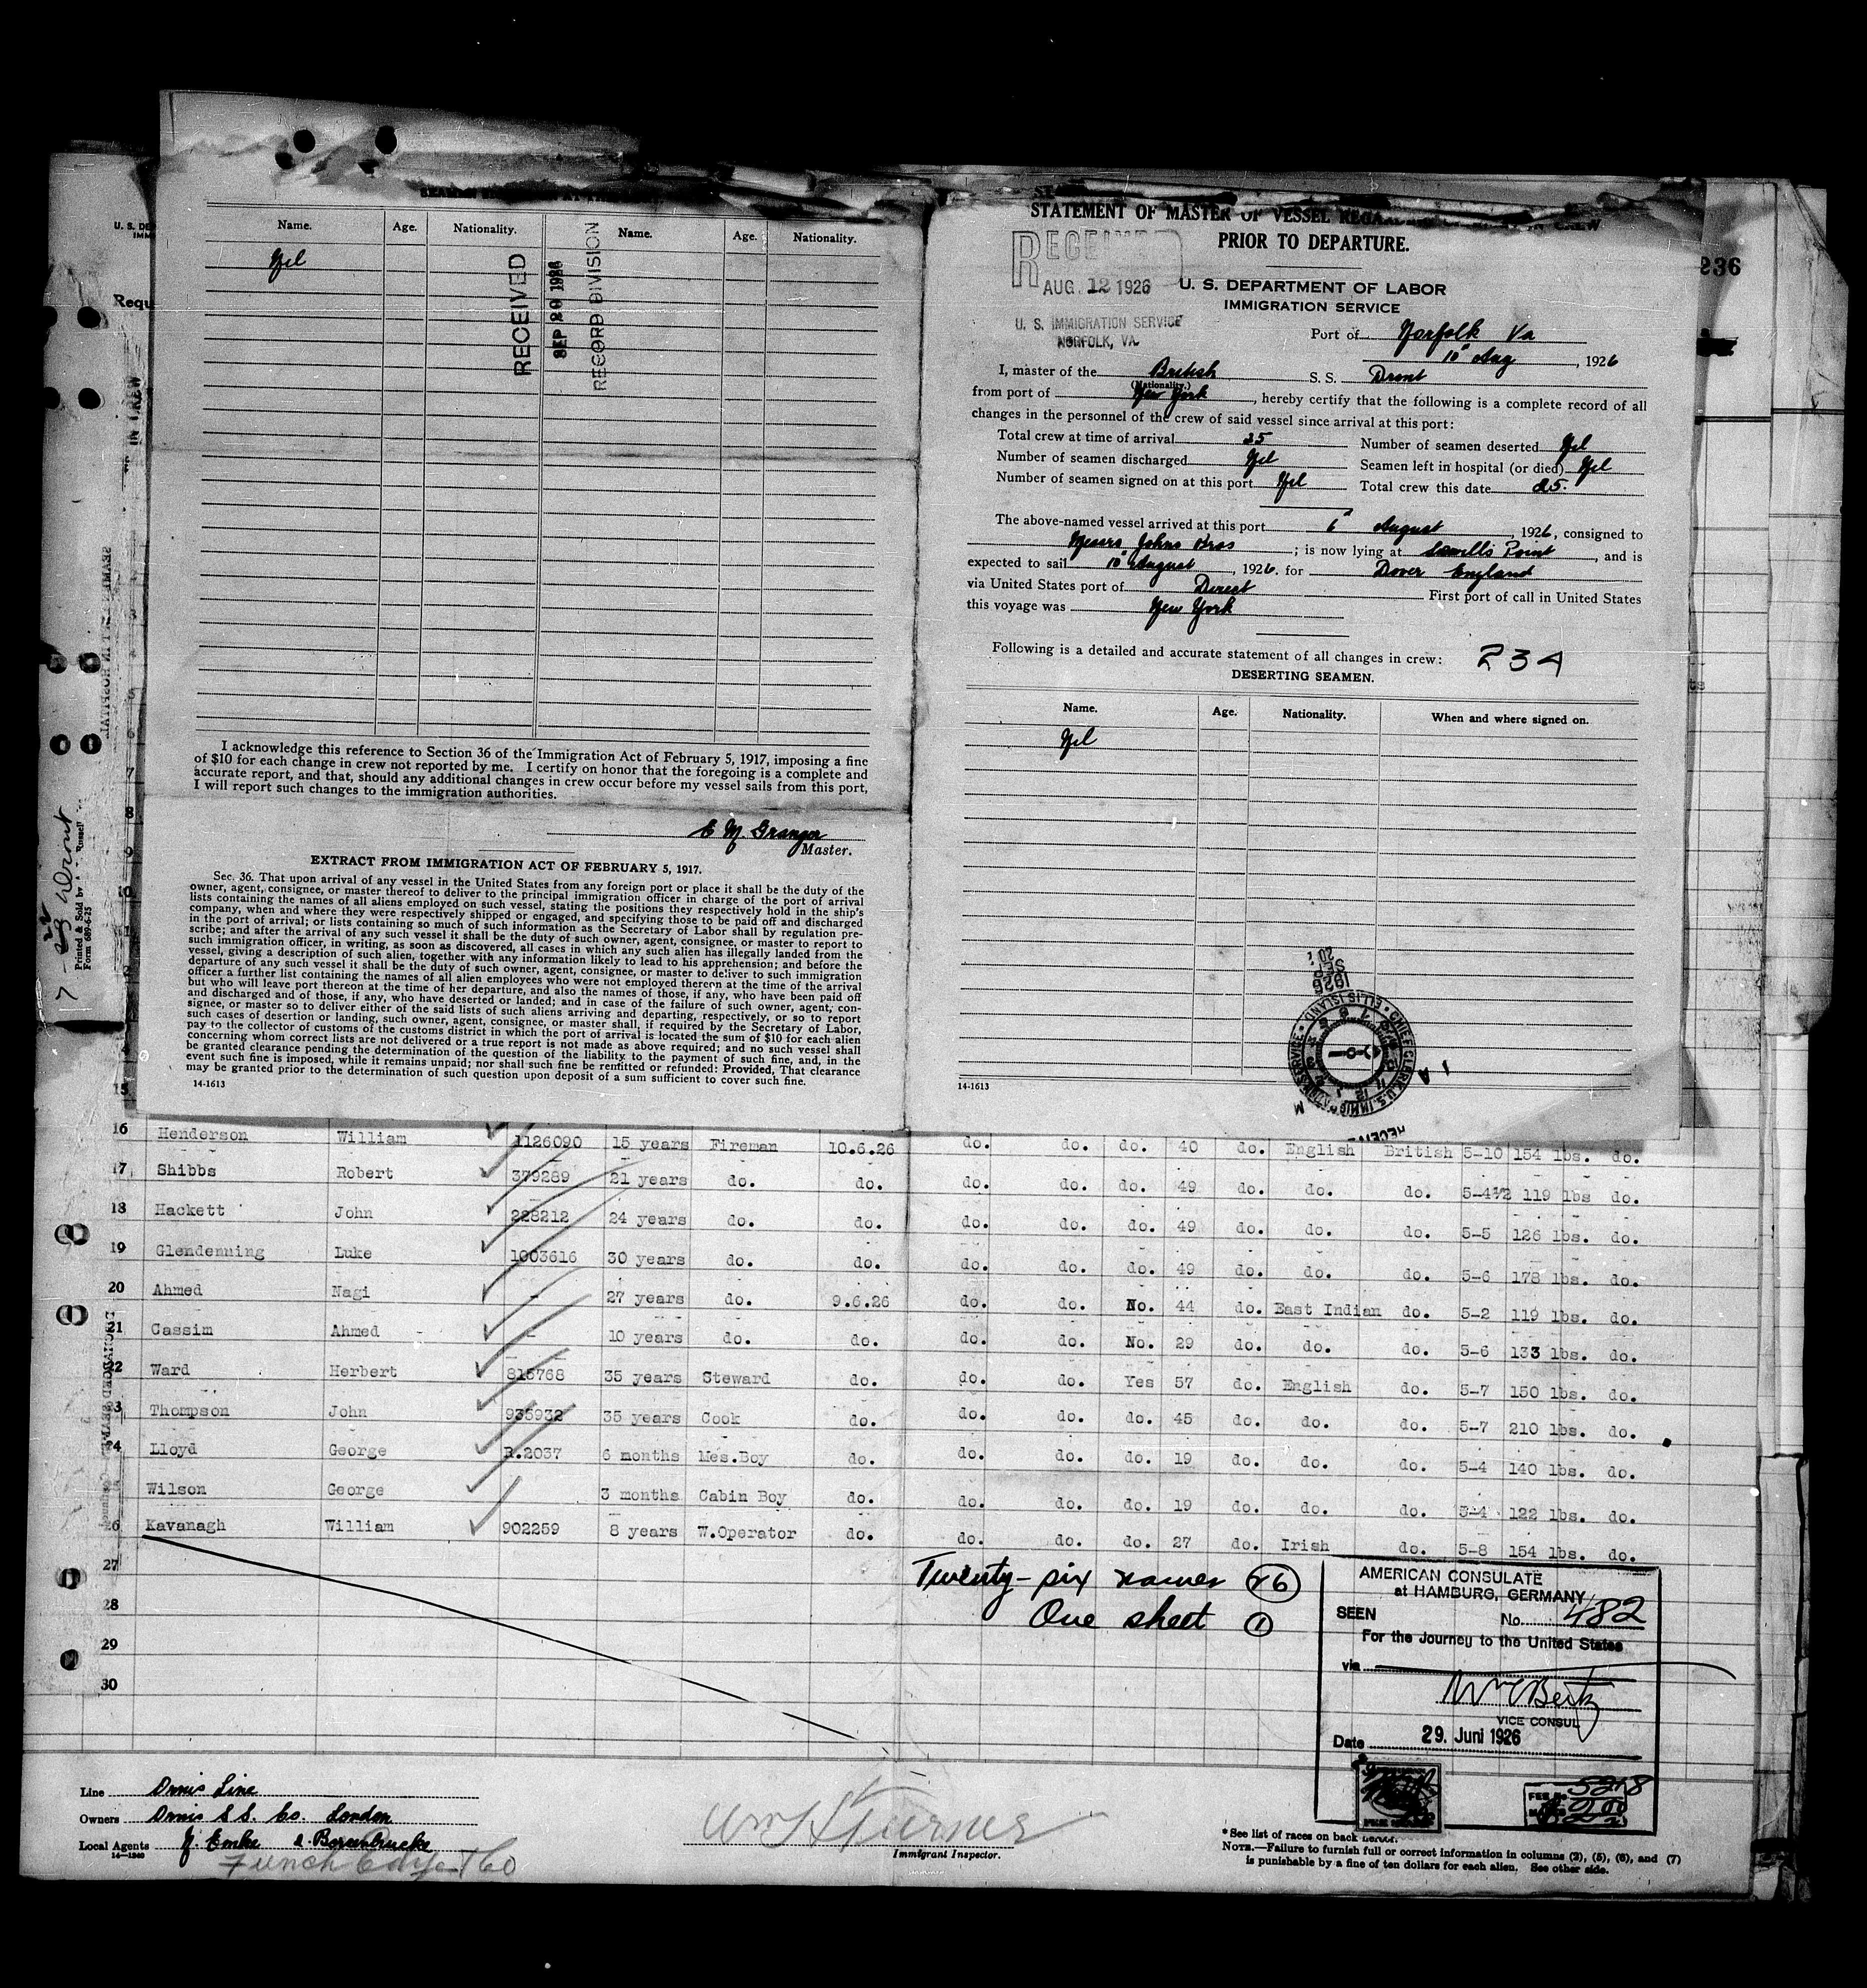 Name. Age. Nationality. Name. Age. Nationality.
Nil
RECEIVED
SEP 20 1926
RECORD DIVISION
I acknowledge this reference to Section 36 of the Immigration Act of February 5, 1917, imposing a fine
of $10 for each change in crew not reported by me. I certify on honor that the foregoing is a complete and
accurate report, and that, should any additional changes in crew occur before my vessel sails from this port,
I will report such changes to the immigration authorities.
E M. Granger
Master.
EXTRACT FROM IMMIGRATION ACT OF FEBRUARY 5, 1917.
Sec. 36. That upon arrival of any vessel in the United States from any foreign port or place it shall be the duty of the
owner, agent, consignee, or master thereof to deliver to the principal immigration officer in charge of the port of arrival
lists containing the names of all aliens employed on such vessel, stating the positions they respectively hold in the ship's
company, when and where they were respectively shipped or engaged, and specifying those to be paid off and discharged
in the port of arrival; or lists containing so much of such information as the Secretary of Labor shall by regulation pre-
scribe; and after the arrival of any such vessel it shall be the duty of such owner, agent, consignee, or master to report to
such immigration officer, in writing, as soon as discovered, all cases in which any such alien has illegally landed from the
vessel, giving a description of such alien, together with any information likely to lead to his apprehension; and before the
departure of any such vessel it shall be the duty of such owner, agent, consignee, or master to deliver to such immigration
officer a further list containing the names of all alien employees who were not employed thereon at the time of the arrival
but who will leave port thereon at the time of her departure, and also the names of those, if any, who have been paid off
and discharged and of those, if any, who have deserted or landed; and in case of the failure of such owner, agent, con-
signee, or master so to deliver either of the said lists of such aliens arriving and departing, respectively, or so to report
such cases of desertion or landing, such owner, agent, consignee, or master shall, if required by the Secretary of Labor,
pay to the collector of customs of the customs district in which the port of arrival is located the sum of $10 for each alien
concerning whom correct lists are not delivered or a true report is not made as above required; and no such vessel shall
be granted clearance pending the determination of the question of the liability to the payment of such fine, and, in the
event such fine is imposed, while it remains unpaid; nor shall such fine be remitted or refunded: Provided, That clearance
may be granted prior to the determination of such question upon deposit of a sum sufficient to cover such fine.
14-1613
STATEMENT OF MASTER OF VESSEL IN CREW
PRIOR TO DEPARTURE.
236
RECEIVED
AUG 12 1926
U. S. IMMIGRATION SERVICE
NORFOLK, VA.
U. S. DEPARTMENT OF LABOR
IMMIGRATION SERVICE
Port of Norfolk Va
10" Aug, 1926
I, master of the British S. S. Dront
(Nationality.)
from port of New York, hereby certify that the following is a complete record of all
changes in the personnel of the crew of said vessel since arrival at this port:
Total crew at time of arrival 25 Number of seamen deserted Nil
Number of seamen discharged Nil Seamen left in hospital (or died) Nil
Number of seamen signed on at this port Nil Total crew this date 25.
The above-named vessel arrived at this port 6" August, 1926, consigned to
Messrs Johns Bros; is now lying at Sewells Point, and is
expected to sail 10" August, 1926. for Dover England
via United States port of Direct First port of call in United States
this voyage was New York
Following is a detailed and accurate statement of all changes in crew: 234
DESERTING SEAMEN.
Name. Age. Nationality. When and where signed on.
Nil
1926
SEP
20
CHIEF CLERK U.S. IMMIGRATION SERVICE ELLIS ISLAND
14-1613
Printed & Sold by
Form 689-6-25
16 Henderson William 1126090 15 years Fireman 10.6.26 do. do. do. 40 do. English British 5-10 154 lbs. do.
17 Shibbs Robert 379289 21 years do. do. do. do. do. 49 do. do. do. 5-4½ 119 lbs do.
18 Hackett John 228212 24 years do. do. do. do. do. 49 do. do. do. 5-5 126 lbs. do.
19 Glendenning Luke 1003616 30 years do. do. do. do. do. 49 do. do. do. 5-6 178 lbs. do.
20 Ahmed Nagi - 27 years do. 9.6.26 do. do. No. 44 do. East Indian do. 5-2 119 lbs. do.
21 Cassim Ahmed - 10 years do. do. do. do. No. 29 do. do. do. 5-6 133 lbs. do.
22 Ward Herbert 815768 35 years Steward do. do. do. Yes 57 do. English do. 5-7 150 lbs. do.
23 Thompson John 935932 35 years Cook do. do. do. do. 45 do. do. do. 5-7 210 lbs. do.
24 Lloyd George R.2037 6 months Mes.Boy do. do. do. do. 19 do. do. do. 5-4 140 lbs. do.
Wilson George 3 months Cabin Boy do. do. do. do. 19 do. do. do. 5-4 122 lbs. do.
26 Kavanagh William 902259 8 years W.Operator do. do. do. do. 27 do. Irish do. 5-8 154 lbs. do.
27
28
29
30
Twenty-six names 26
One sheet 1
AMERICAN CONSULATE
at HAMBURG, GERMANY
SEEN No. 482
For the Journey to the United States
via
VICE CONSUL
Date 29. Juni 1926
FEE No. 5218
Line
Owners S S. Co. London
Local Agents
14-1240
Funch Edye & Co
Wm H Turner
Immigrant Inspector.
* See list of races on back hereof.
NOTE.—Failure to furnish full or correct information in columns (2), (5), (6), and (7)
is punishable by a fine of ten dollars for each alien. See other side.